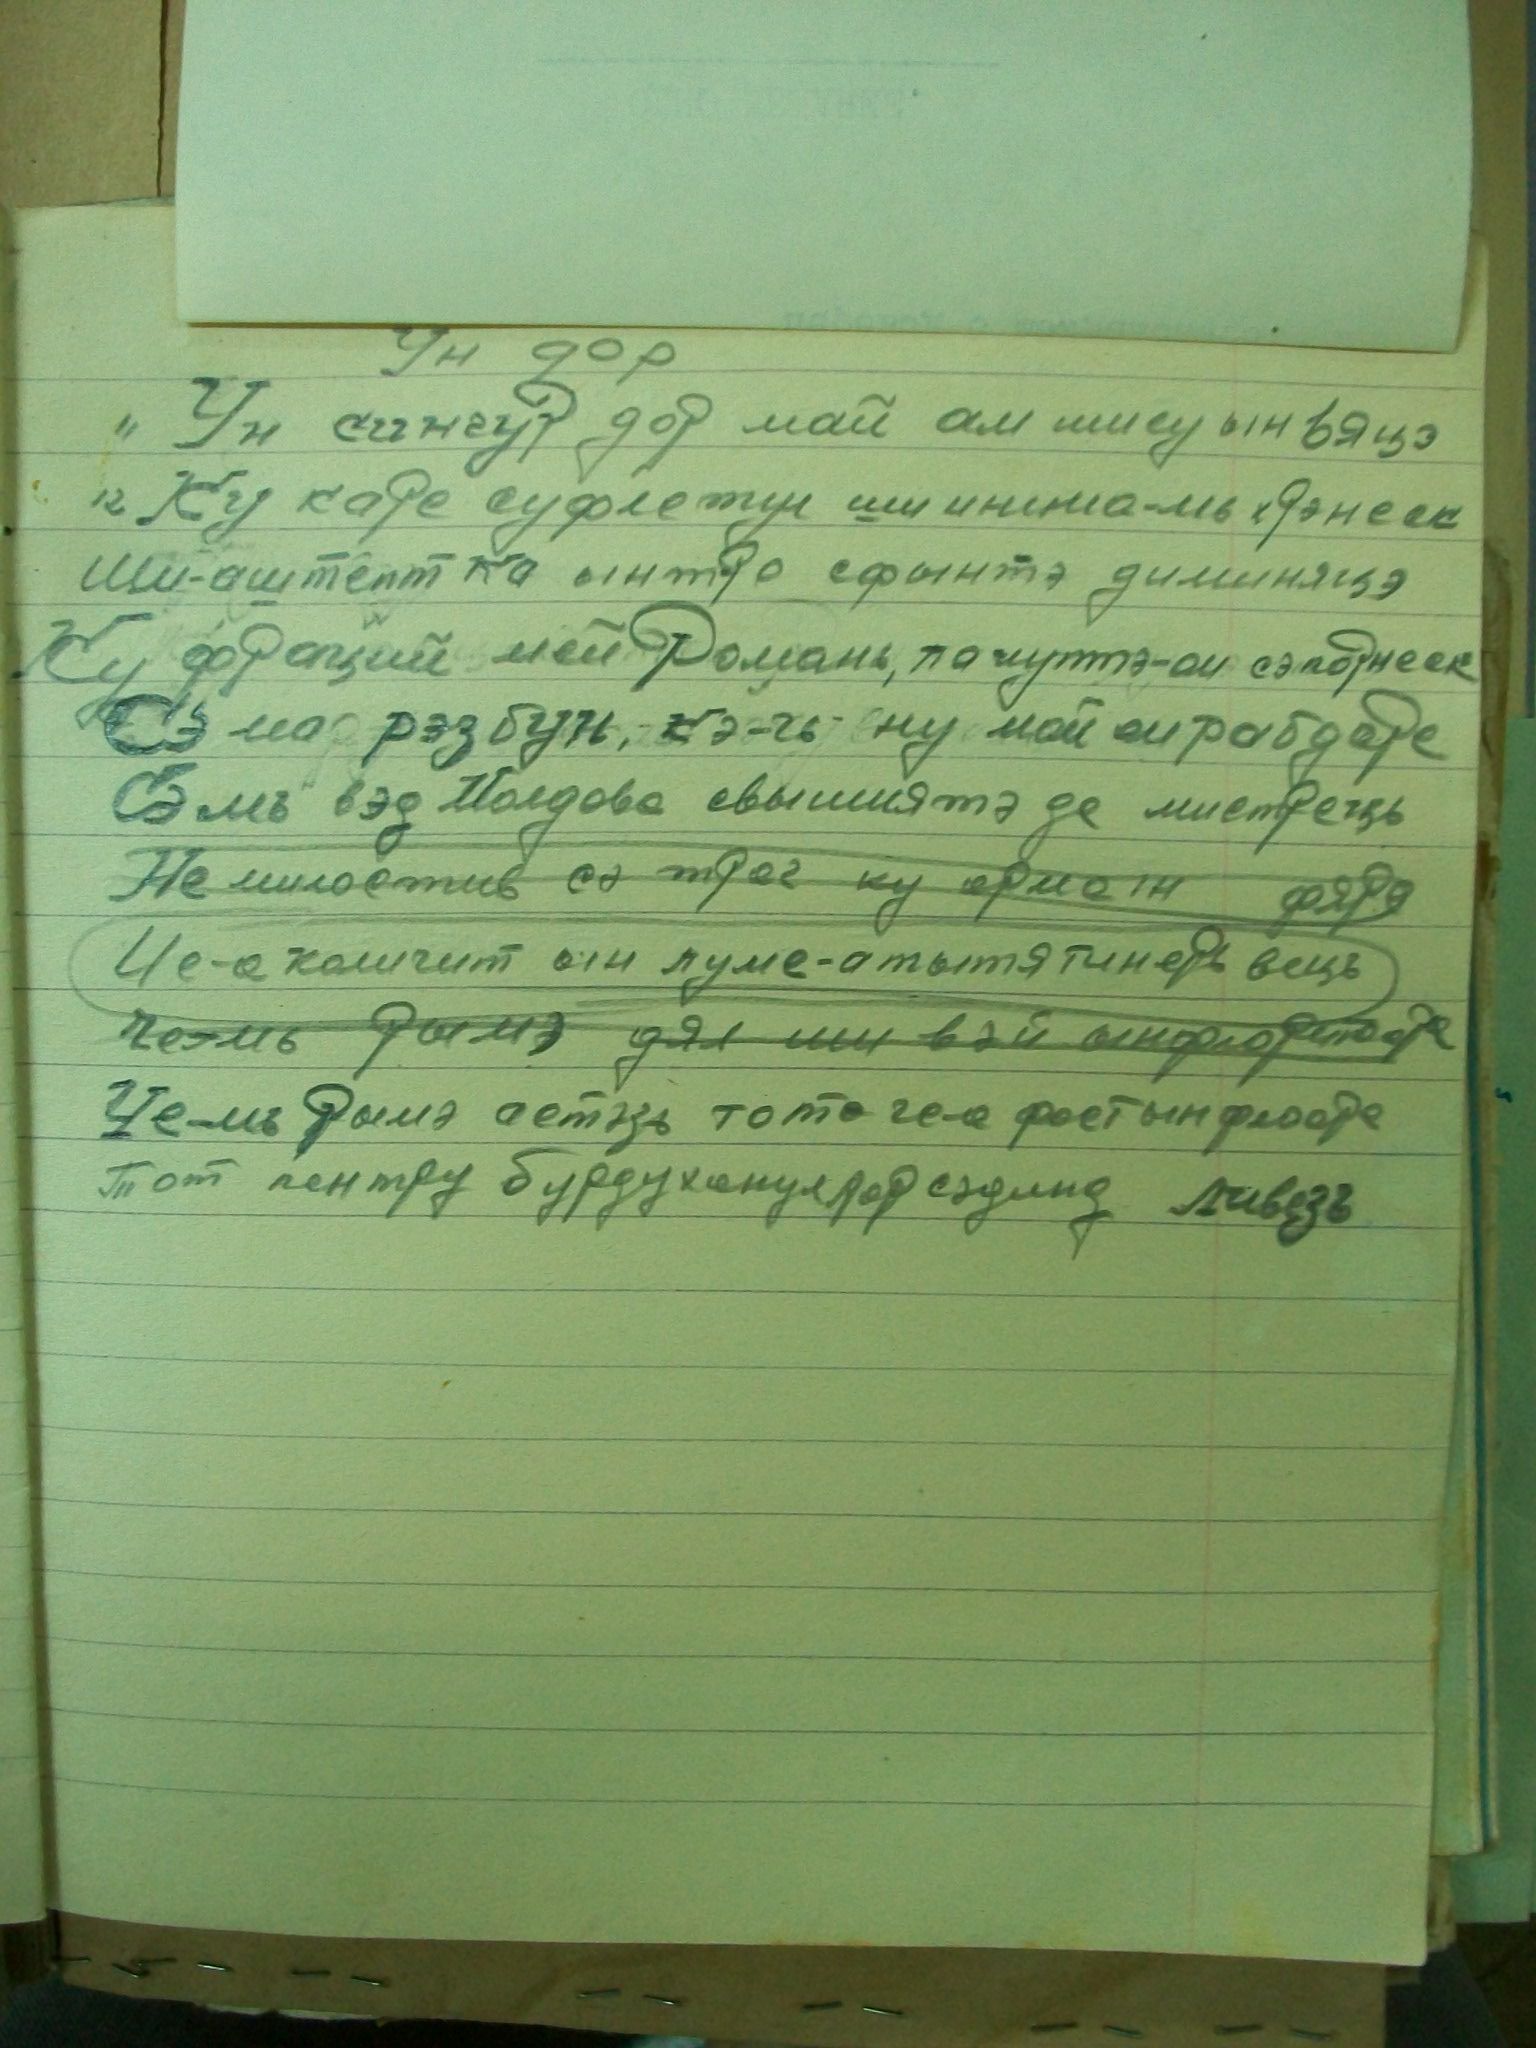 Ун дор
" Ун сингур дор май ам ши еу ын вяцэ
Ку каре суфлетул ши инима-мь хрэнеск
Ши-аштепт ка ынтро сфынтэ диминяцэ
Ку фраций мей Романь, ла луптэ-ам сэ порнеск
Сэ ма рэзбун, кэ-чь ну май ам рабдаре
Сэ мь вэд Молдова свышиятэ де мистрець
Не милостив сэ траг ку арма ын фяря
Це-а каличит ын луме-атытя тинерь вець
че-мь рымэ дял ши вэй ын флоаре
Це-мь рымэ астэзь тот че-а фост ын флоаре
Тот пентру бурдуханул лор сэдинд ливезь